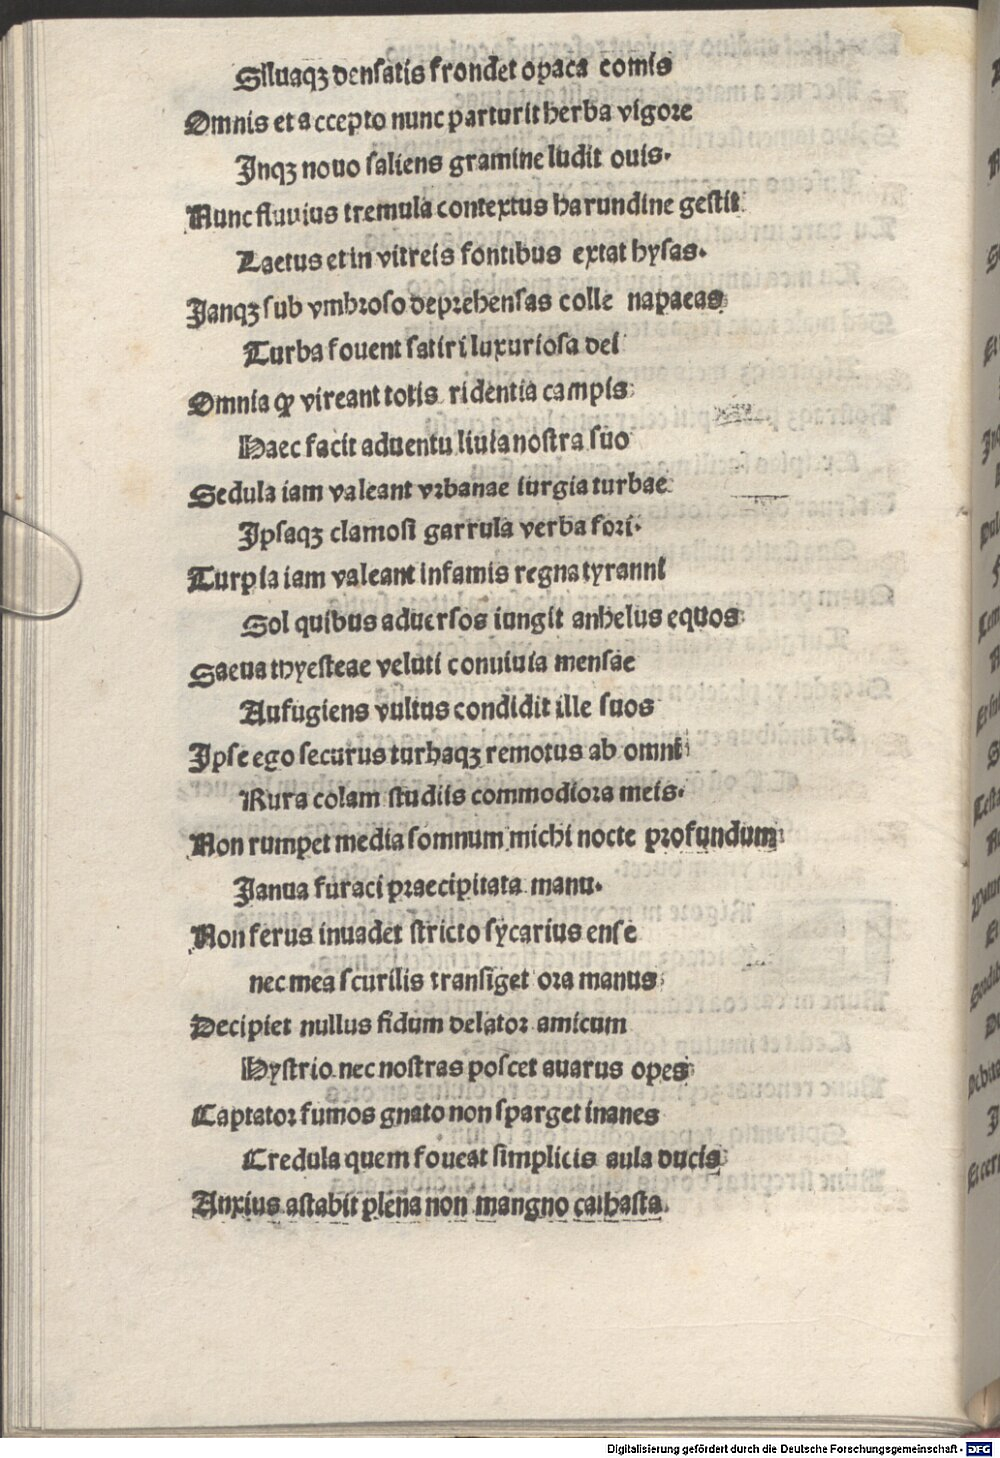 Siluaqꝫ densatis frondet opaca comis
Omnis et accepto nunc parturit herba vigore
Inqꝫ nouo saliens gramine ludit ouis.
Nunc fluuius tremula contextus harundine gestit
Laetus et in vitreis fontibus extat hysas.
Janqꝫ sub vmbroso deprehensas colle napaeas
Turba fouent satiri luxuriosa dei
Omnia ꝙ vireant totis ridentia campis
Haec facit aduentu liuia nostra suo
Sedula iam valeant vrbanae iurgia turbae
Ipsaqꝫ clamosi garrula verba fori.
Turpia iam valeant infamis regna tyranni
Sol quibus aduersos iungit anhelus equos
Saeua thyesteae veluti conuiuia mensae
Aufugiens vultus condidit ille suos
Ipse ego securus turbaqꝫ remotus ab omni
Rura colam studiis commodiora meis.
Non rumpet media somnum michi nocte profundum
Janua furaci praecipitata manu.
Non ferus inuadet stricto sycarius ense
nec mea scurilis transiget ora manus
Decipiet nullus fidum delator amicum
Hystrio nec nostras poscet auarus opes
Captator fumos gnato non sparget inanes
Credula quem foueat simplicis aula ducis
Anxius astabit plena non mangno catbasta.
Digitalisierung gefördert durch die Deutsche Forschungsgemeinschaft - DFG